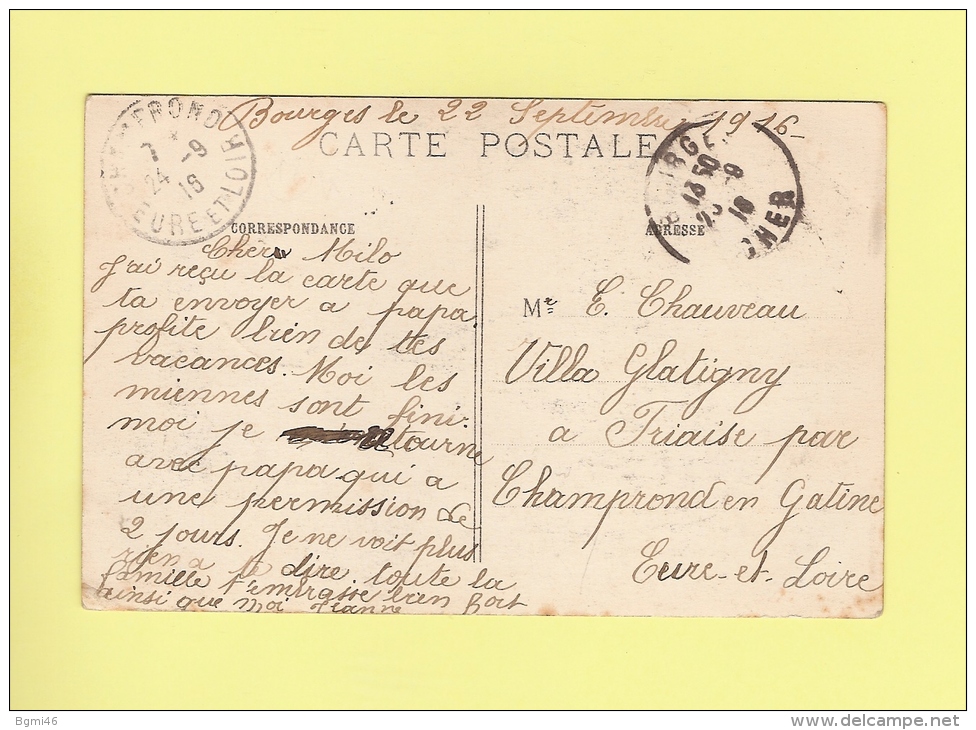 Bourges le 22 Septembre 1916
CARTE POSTALE
CHAMPROND
7 *
24 -9
16
EURE ET LOIR
BOURGES
13 50
-9
16
CHER
CORRESPONDANCE
ADRESSE
Chère Milo
J'ai reçu la carte que
ta envoyer a papa.
profite bien de tes
vacances. Moi les
miennes sont fini.
moi je retourne
avec papa qui a
une permission de
2 jours. Je ne voit plus
rien a te dire toute la
famille t'embrasse bien fort
ainsi que moi Jeanne
Mr E. Chauveau
Villa Glatigny
a Friaise par
Champrond en Gatine
Eure-et-Loire
Bgmi46
www.delcampe.net